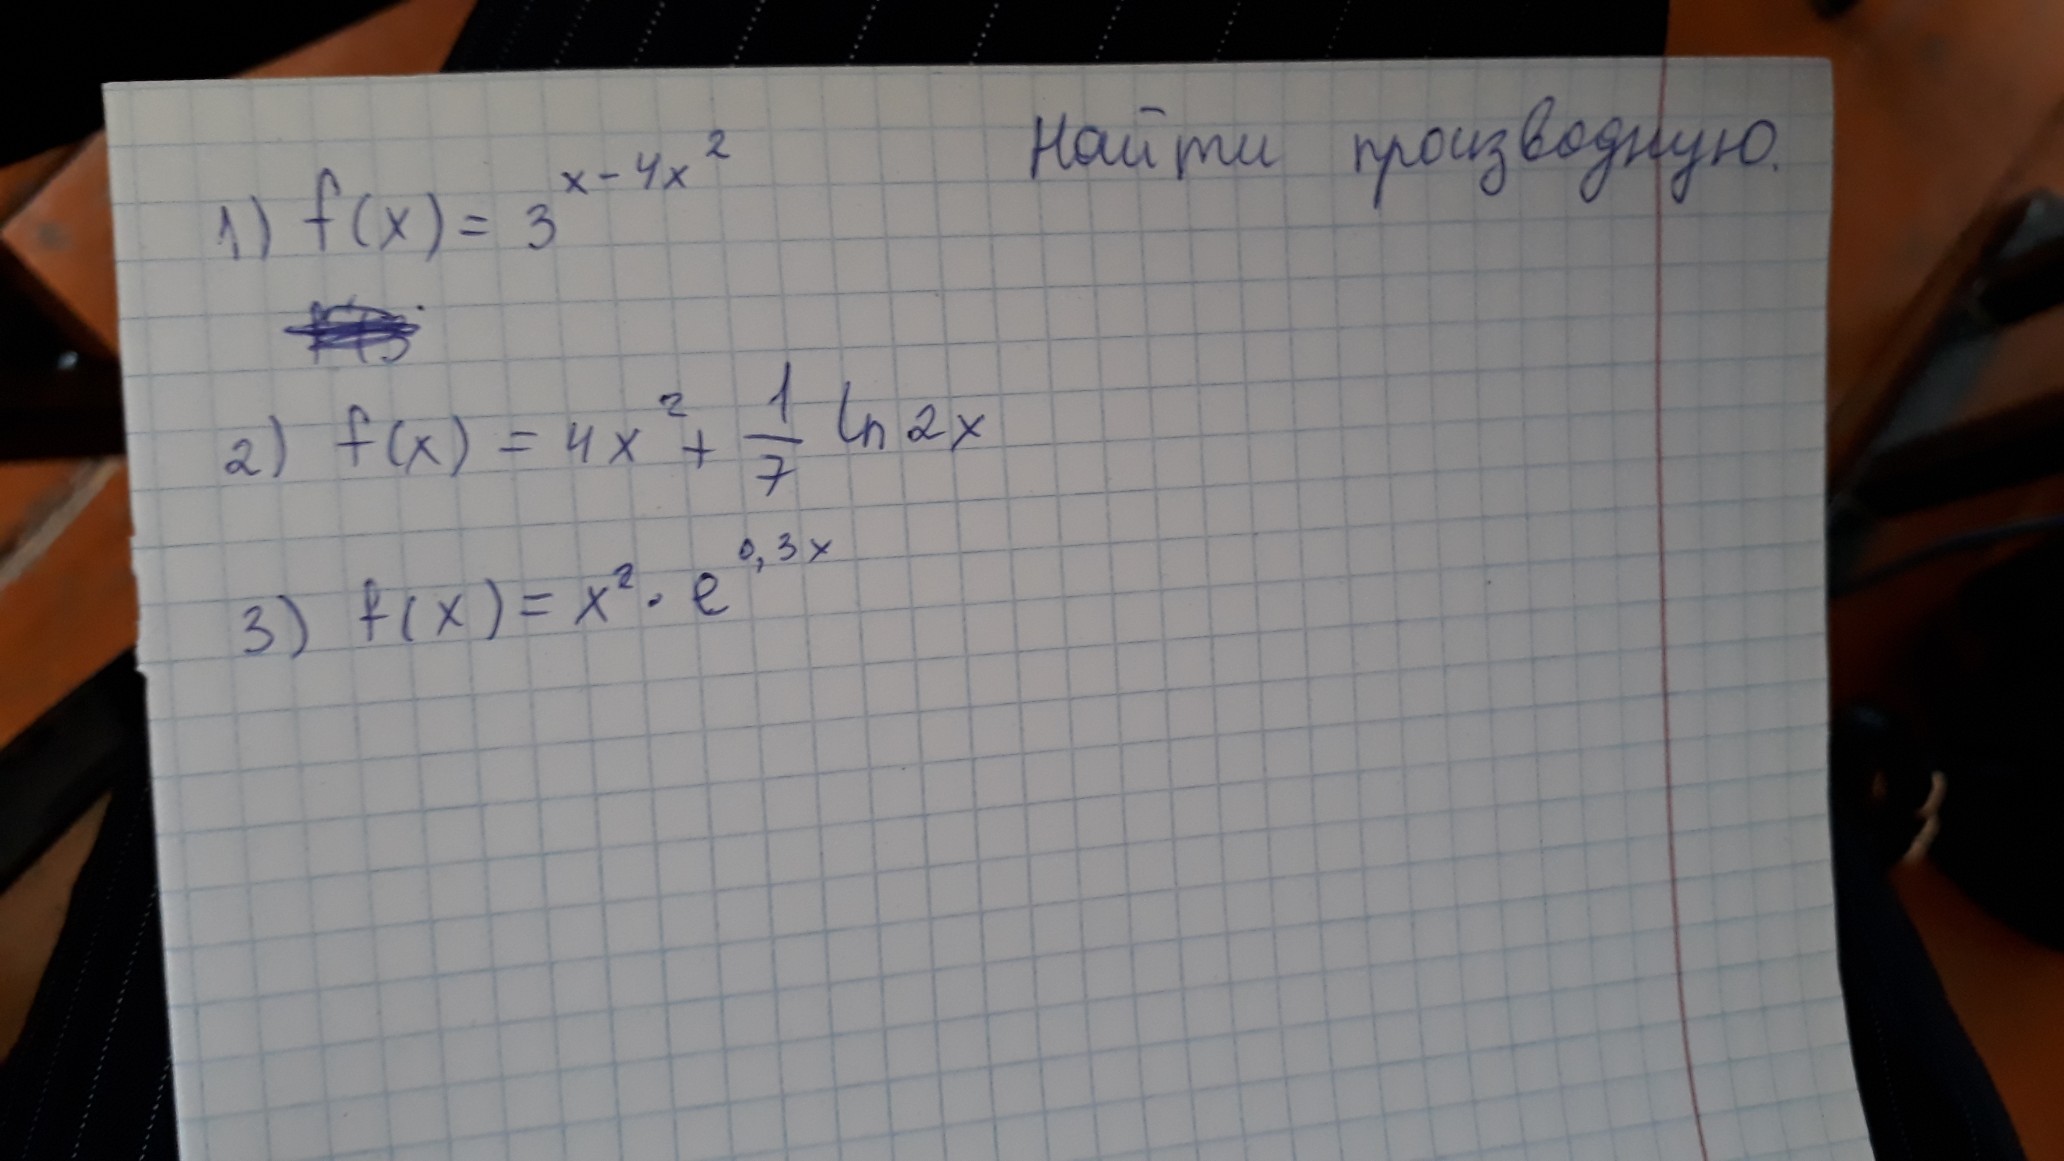 Найти производную.
1) f(x) = 3^{x-4x^2}
2) f(x) = 4x^2 + \frac{1}{7} ln 2x
3) f(x) = x^2 · e^{0,3x}